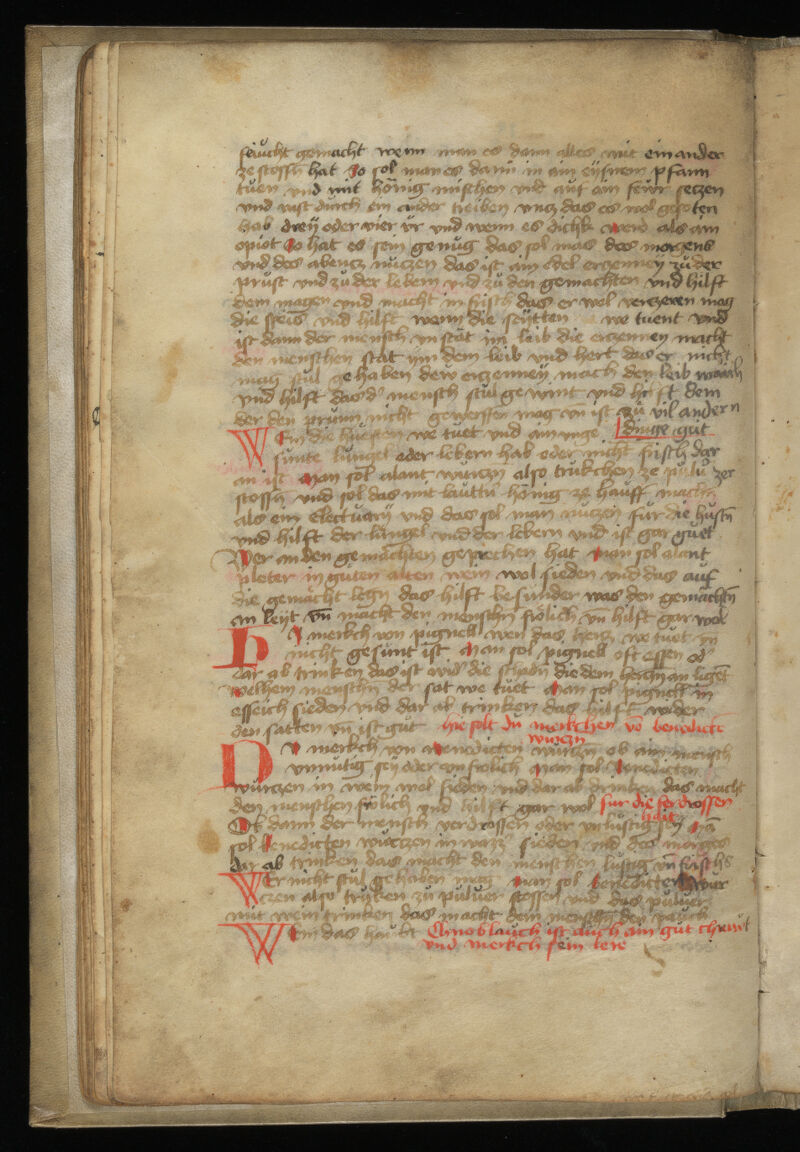 feücht gemacht wenn man es dann alles mit ein ander
ze stossn hat So sol man es dann in ain eysnein pfann
tuen vnd mit hönig mischen vnd auf ain fewr seczen
vnd vast durch ein ander treiben vncz das es wol gesoten
hab dreÿ oder vier vr vnd wenn es dickh werd als ain
opiot So hat es sein genüg das sol mas des morgens
vnd des abencz nüczen das ist ain edel erczenney zü der
prüst vnd zü der lebern vnd zü den gemachten vnd hilft
dem magen vnd macht in frisch das er wol verczeren mag
die speis vnd hilft wenn die seÿtten we tuent vnd
ist dann der mensch vnstät im leib die erczenney macht
den menschen stät inn dem leib vnd hert das er nicht
mag stul gehaben dew erczenneÿ mach den leib waich
vnd hilft das d mensch stül gewint vnd hilft dem
der den prünn nicht gewerffen mag vn ist zü vil andern
Wem die huesten we tuet vnd ain vnge dinge güt
sunte lungel oder lebern hab oder nicht frisch dar
an ist Man sol alant würczn also trükchen ze pulü zer
stossn vnd sol das mit lauttn hönig ze hauff machn
als ein electuarÿ vnd das sol man nüczen für die hüstn
vnd hilft der lungel vnd der lebern vnd ist gar guet
Wer an den gemächten geprechen hat Man sol alant
pleter in guten alten wein wol sieden vnd das auf
die gemächt legn das hilft besunder was den gemächtn
an leyt vn macht den menschn frölich vn hilft gar wol
Dü merkch von pignell wen das hercz we tuet vn
nicht gesunt ist Man sol pignell oft essen od
dar ab trinken das ist wid die schadn die dem herczn an ligent
Welhem menschn der sat we tuet Man sol pignell in
esseich sieden vnd dar ab trinken das hilft wider
den satten vn ist gut hie solt du merkchen vo benedicte
würczn
Dü merkch von Benedicten würczn ob ain mensch
vnmütig sey oder vnfrolich Man sol Benedicten
würczen in wein wol sieden vnd dar ab drinken das macht
den menschen frölich vnd hilft gar wol für die ferdrossen
hait
Ob dann der mensch verdrossen oder vnlustig sey Man
sol Benedicten würczen in wazz sieden vnd des morges
dar ab trinken das macht den menschen lustig vn frisch
Wer nicht stul gehaben mag Man sol Benedicten wur
czen also trüken zü puluer stossen vnd das puluer
mit wein trinken das macht dem menschn den pauch
Wem das haubt Chnoblauch ist auch ain güt chrawt
vnd merkch sein lere